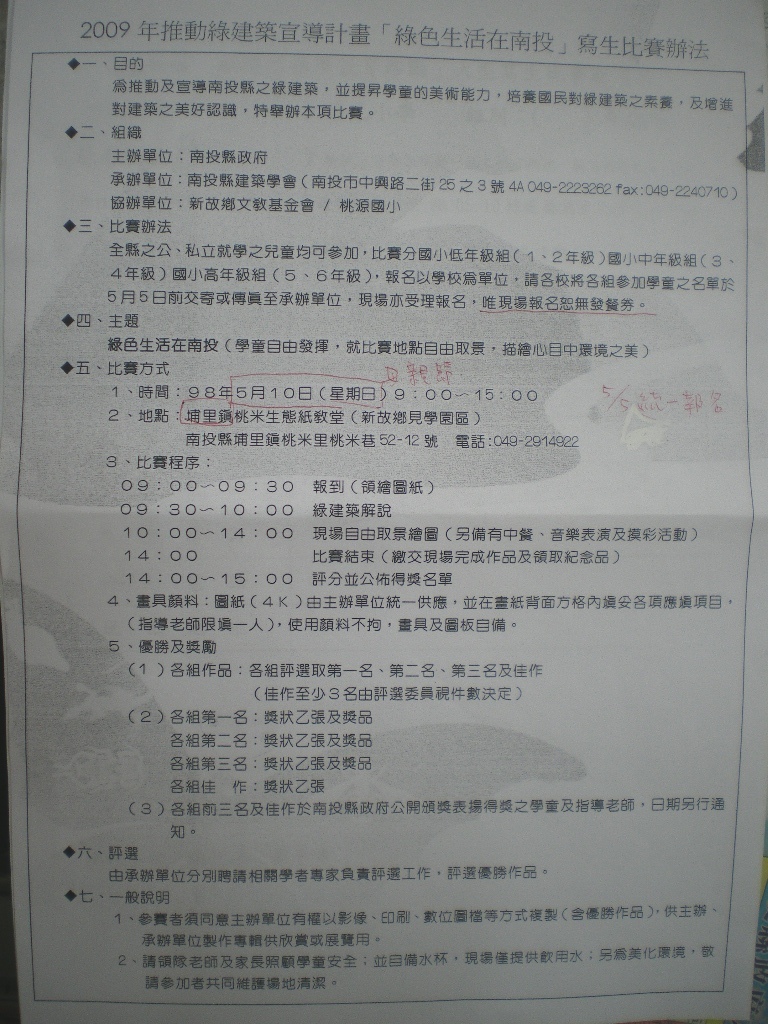 2009 年推動綠建築宣導計畫「綠色生活在南投」寫生比賽辦法
◆一、目的
為推動及宣導南投縣之綠建築，並提昇學童的美術能力，培養國民對綠建築之素養，及增進
對建築之美好認識，特舉辦本項比賽。
◆二、組織
主辦單位：南投縣政府
承辦單位：南投縣建築學會（南投市中興路二街 25 之 3 號 4A 049-2223262 fax:049-2240710）
協辦單位：新故鄉文教基金會 / 桃源國小
◆三、比賽辦法
全縣之公、私立就學之兒童均可參加，比賽分國小低年級組（１、２年級）國小中年級組（３、
４年級）國小高年級組（５、６年級），報名以學校為單位，請各校將各組參加學童之名單於
５月５日前交寄或傳真至承辦單位，現場亦受理報名，唯現場報名恕無發餐券。
◆四、主題
綠色生活在南投（學童自由發揮，就比賽地點自由取景，描繪心目中環境之美）
◆五、比賽方式
母親節
１、時間：９８年５月１０日（星期日）９：００～１５：００
5/5 統一報名
２、地點：埔里鎮桃米生態紙教堂（新故鄉見學園區）
南投縣埔里鎮桃米里桃米巷 52-12 號　電話:049-2914922
３、比賽程序：
０９：００～０９：３０　報到（領繪圖紙）
０９：３０～１０：００　綠建築解說
１０：００～１４：００　現場自由取景繪圖（另備有中餐、音樂表演及摸彩活動）
１４：００　比賽結束（繳交現場完成作品及領取紀念品）
１４：００～１５：００　評分並公佈得獎名單
４、畫具顏料：圖紙（４Ｋ）由主辦單位統一供應，並在畫紙背面方格內填妥各項應填項目，
（指導老師限填一人），使用顏料不拘，畫具及圖板自備。
５、優勝及獎勵
（１）各組作品：各組評選取第一名、第二名、第三名及佳作
（佳作至少３名由評選委員視件數決定）
（２）各組第一名：獎狀乙張及獎品
各組第二名：獎狀乙張及獎品
各組第三名：獎狀乙張及獎品
各組佳　作：獎狀乙張
（３）各組前三名及佳作於南投縣政府公開頒獎表揚得獎之學童及指導老師，日期另行通
知。
◆六、評選
由承辦單位分別聘請相關學者專家負責評選工作，評選優勝作品。
◆七、一般說明
１、參賽者須同意主辦單位有權以影像、印刷、數位圖檔等方式複製（含優勝作品），供主辦、
承辦單位製作專輯供欣賞或展覽用。
２、請領隊老師及家長照顧學童安全；並自備水杯，現場僅提供飲用水；另為美化環境，敬
請參加者共同維護場地清潔。